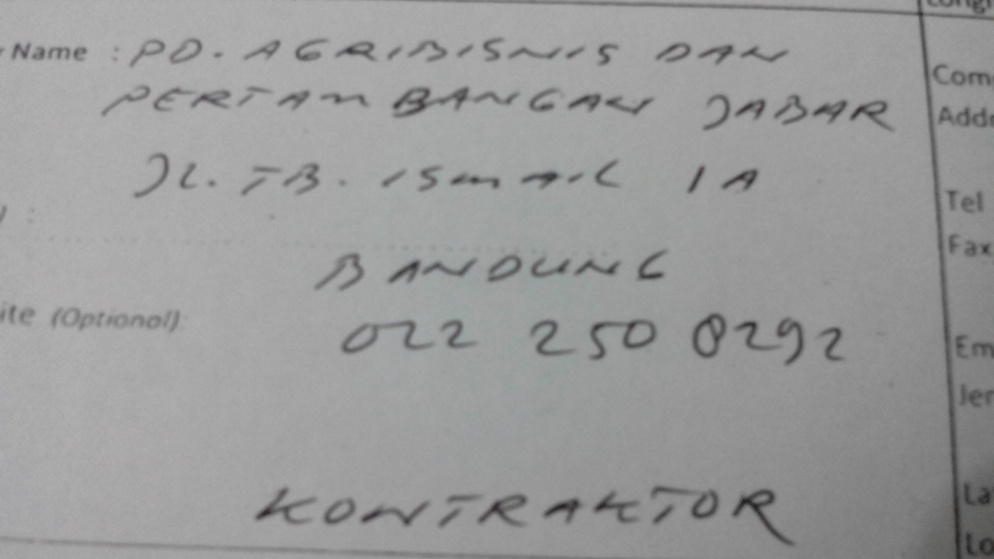 Name : PD. AGRIBISNIS DAN
PERTAMBANGAN JABAR
JL. TB. ISMAIL 1A
:
BANDUNG
ite (Optional):
022 250 8292
KONTRAKTOR
Com
Addr
Tel
Fax
Em
Jer
La
Lo